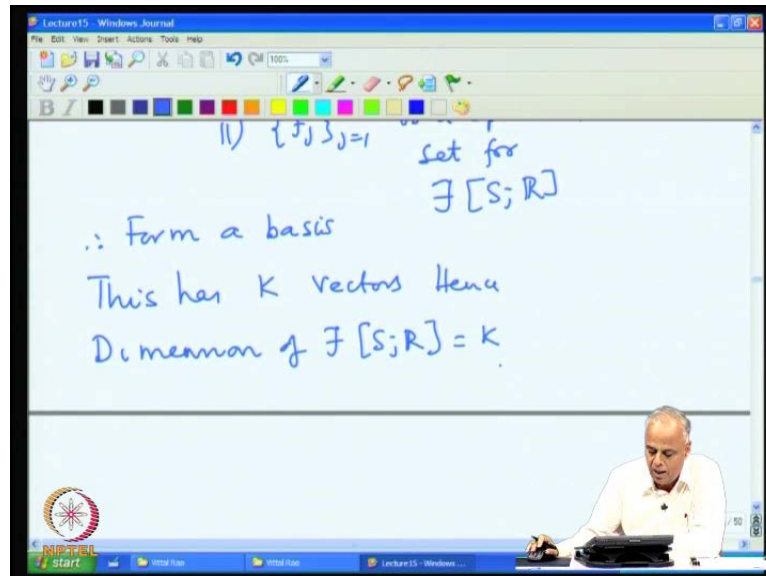 Lecture15 - Windows Journal
File Edit View Insert Actions Tools Help
100%
B I
II) {fj}j=1
set for
F [S; R]
∴ Form a basis
This has K vectors Hence
Dimension of F [S; R] = K.
/ 50
NPTEL
start Vittal Rao Vittal Rao Lecture15 - Windows ...